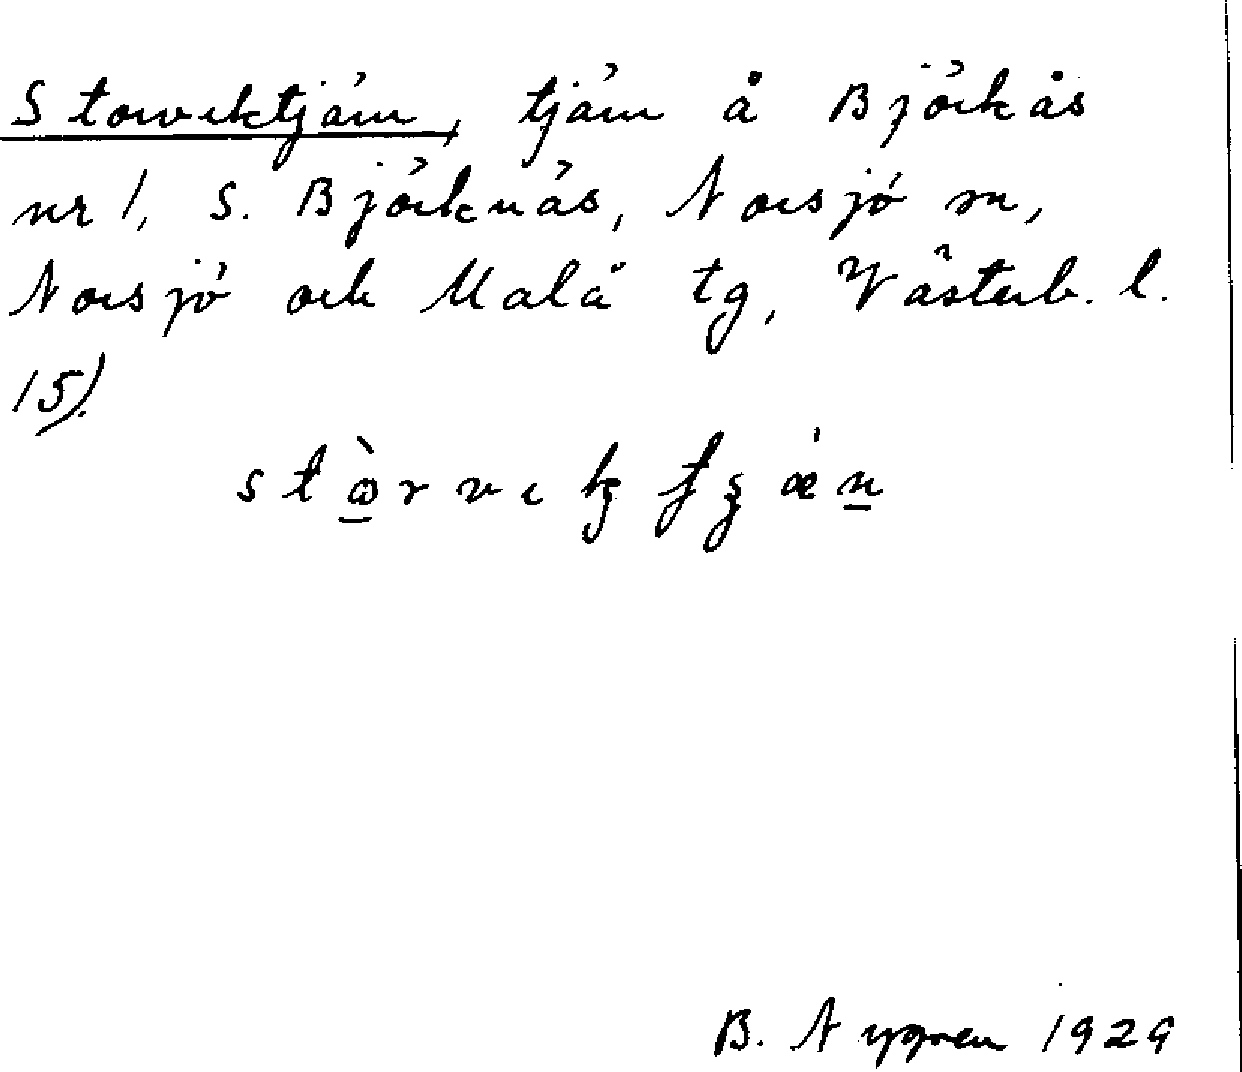 Storviktjärn, tjärn å Björkås
nr 1, S. Björknäs, Norsjö sn,
Norsjö och Malå tg, Västerb. l.
15).
B. Nygren 1929